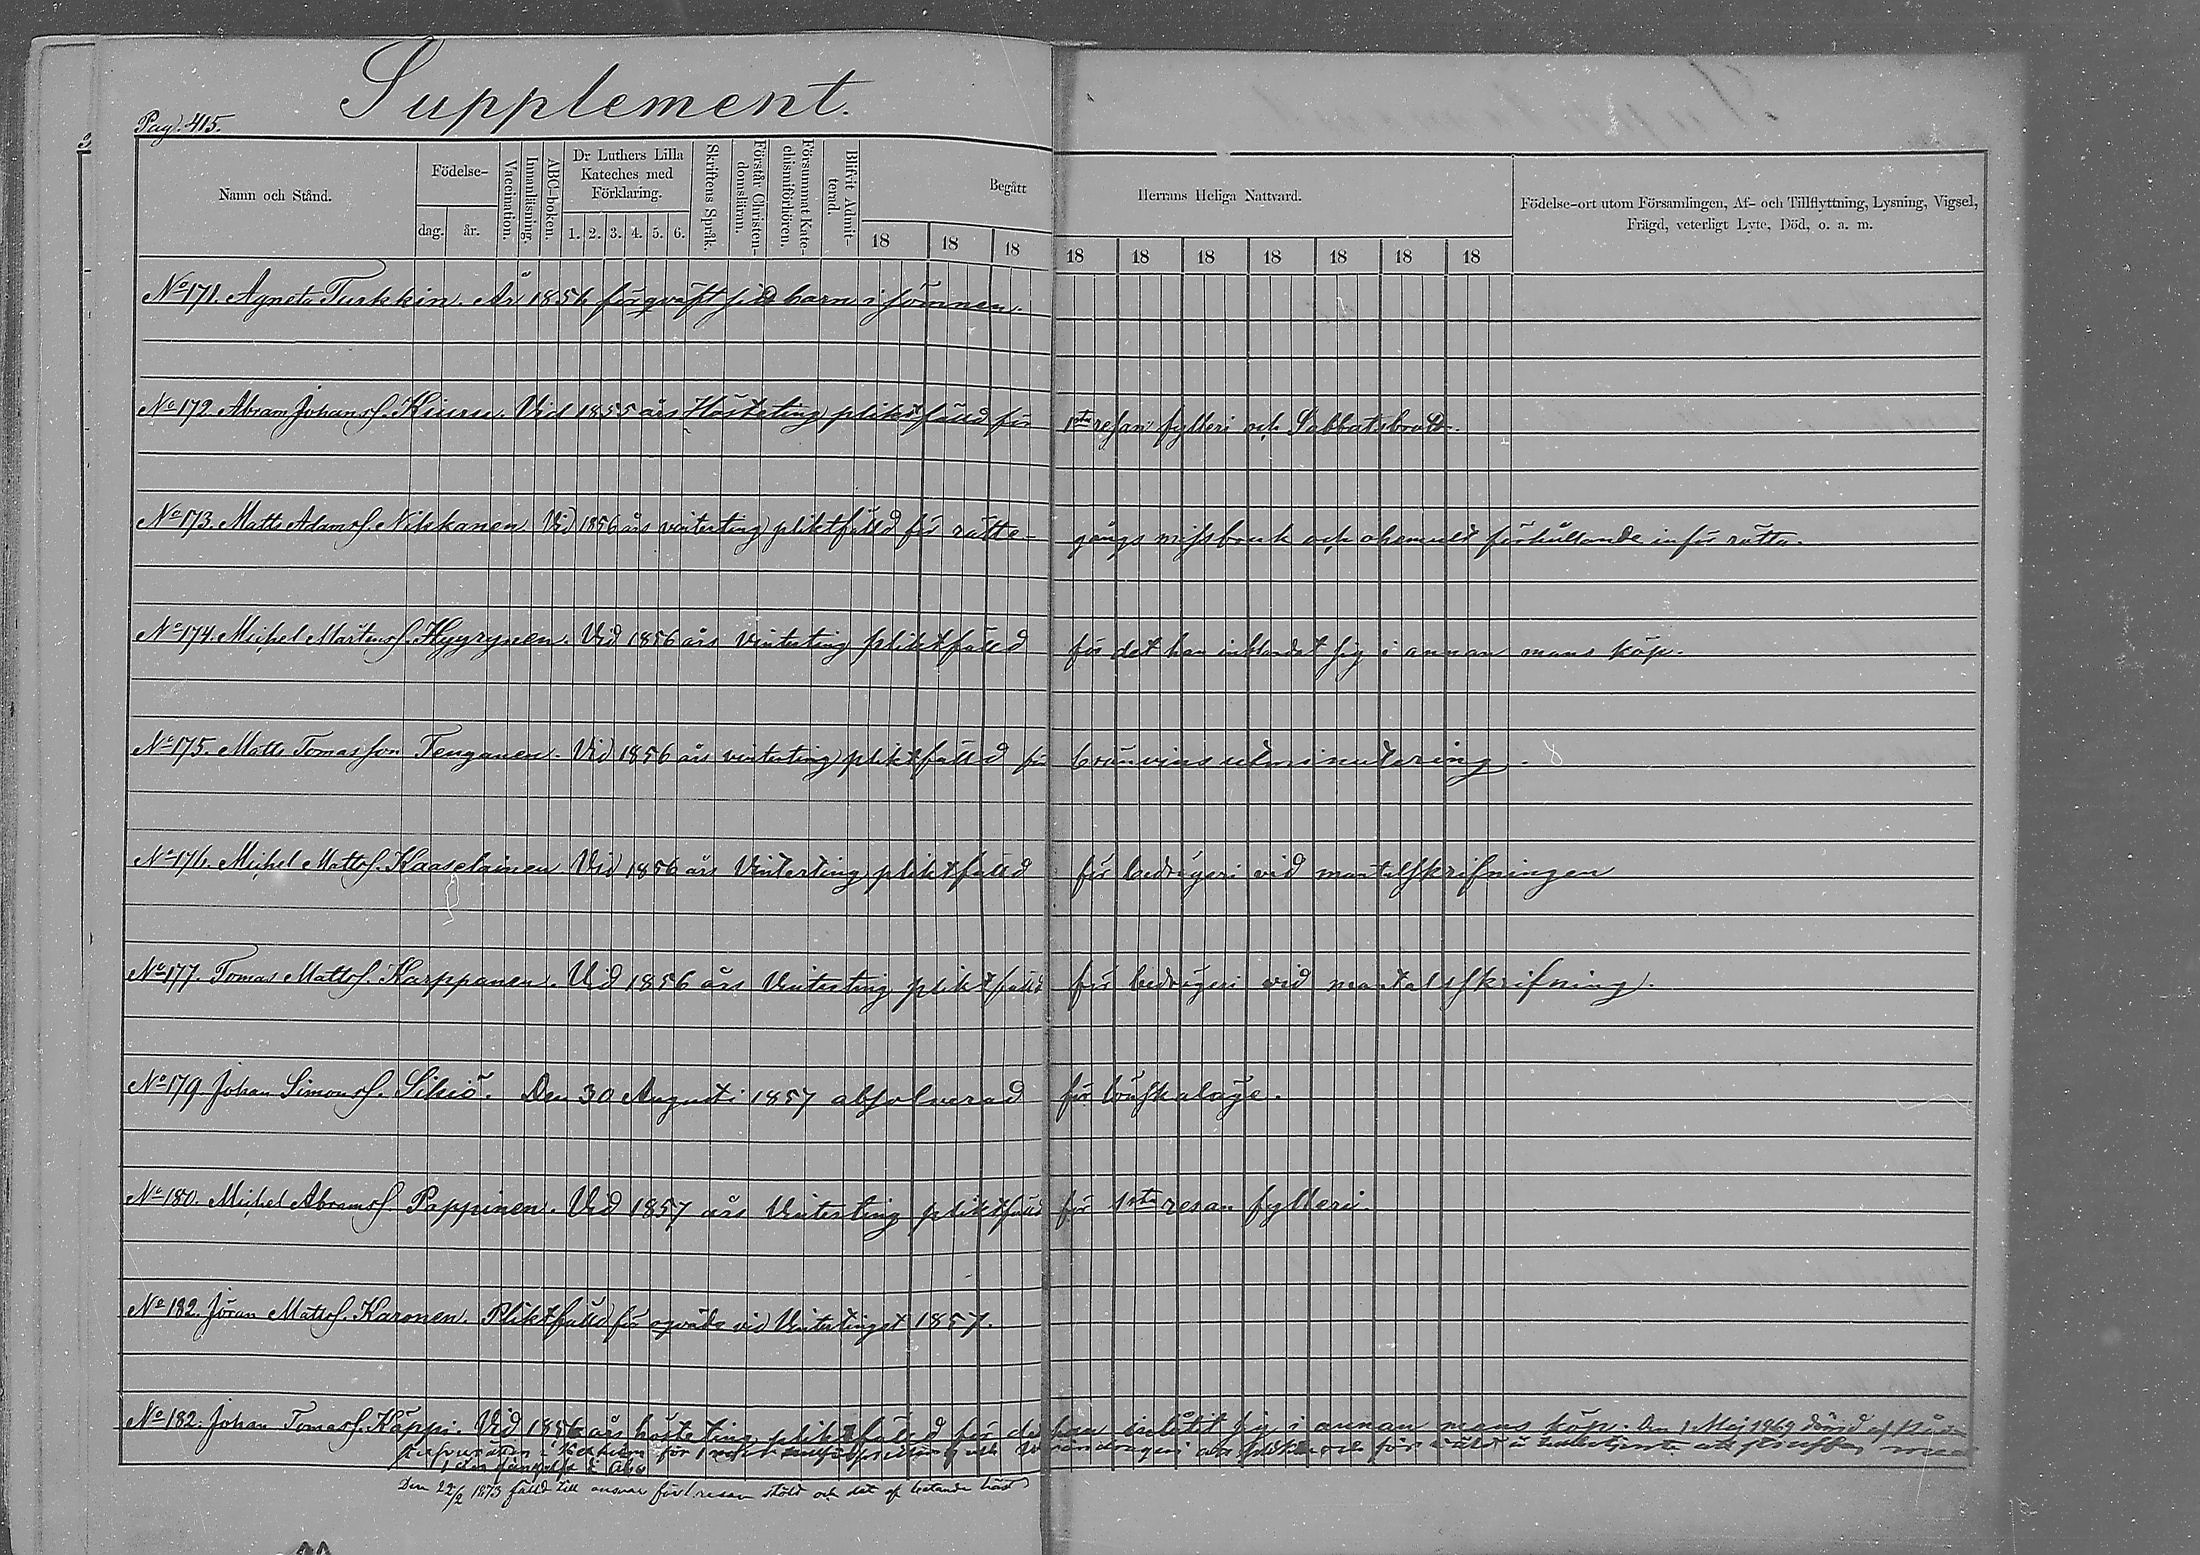 Supplement.
Pag. 415.
Namn och Stånd.
Födelse-
dag.
år.
Vaccination.
Innanläsning.
ABC-boken.
Dr Luthers Lilla
Kateches med
Förklaring.
1. 2. 3. 4. 5. 6.
Skriftens Språk.
Förstår Christen-
domsläran.
Försummat Kate-
chismiförhören.
Blifvit Admit-
terad.
Begått
Herrans Heliga Nattvard.
18 18 18 18 18 18 18 18 18 18
Födelse-ort utom Församlingen, Af- och Tillflyttning, Lysning, Vigsel,
Frägd, veterligt Lyte, Död, o. a. m.
No 171. Agneta Turkkin. År 1856 förqväft sitt barn i sömnen.
No 172. Abram Johansf. Kiuru. Vid 1855 års Hösteting pliktfälld för 1sta resan fylleri och Sabbatsbrott.
No 173. Matts Adamsf. Nikkanen Vid 1856 års vinterting pliktfälld för rätte-gångs missbruk och ohemult förhållande inför rätta.
No 174. Michel Mårtensf. Hyyrynen. Vid 1856 års vinterting pliktfälld för det han inblandat sig i annan mans köp.
No 175. Matts Tomasson Tenganen. Vid 1856 års vinterting pliktfälld för bränvins utminutering.
No 176. Michel Mattsf. Kaaselainen Vid 1856 års Vinterting pliktfälld för bedrägeri vid mantalskrifningen
No 177. Tomas Mattsf. Karppanen. Vid 1856 års Vinterting pliktfälld för bedrägeri vid mantalsskrifning.
No 179. Johan Simonsf. Sihiö. Den 30 Augusti 1857 absolverad för lönskaläge.
No 180. Michel Abramsf. Pappinen. Vid 1857 års Vinterting pliktfälld för 1sta resan fylleri.
No 182. Jöran Mattsf. Karonen. Pliktfälld för oqväde vid Vintertinget 1857.
No 182. Johan Tomasf. Käppi. Vid 1856 års hösteting pliktfälld för det han inlåtit sig i annan mans köp. Den 1 Maj 1869 dömd af
för och för att straffas med
i Åbo
Den 22/2 1873 fälld till ansvar för 1 resan stöld och det af betande häst